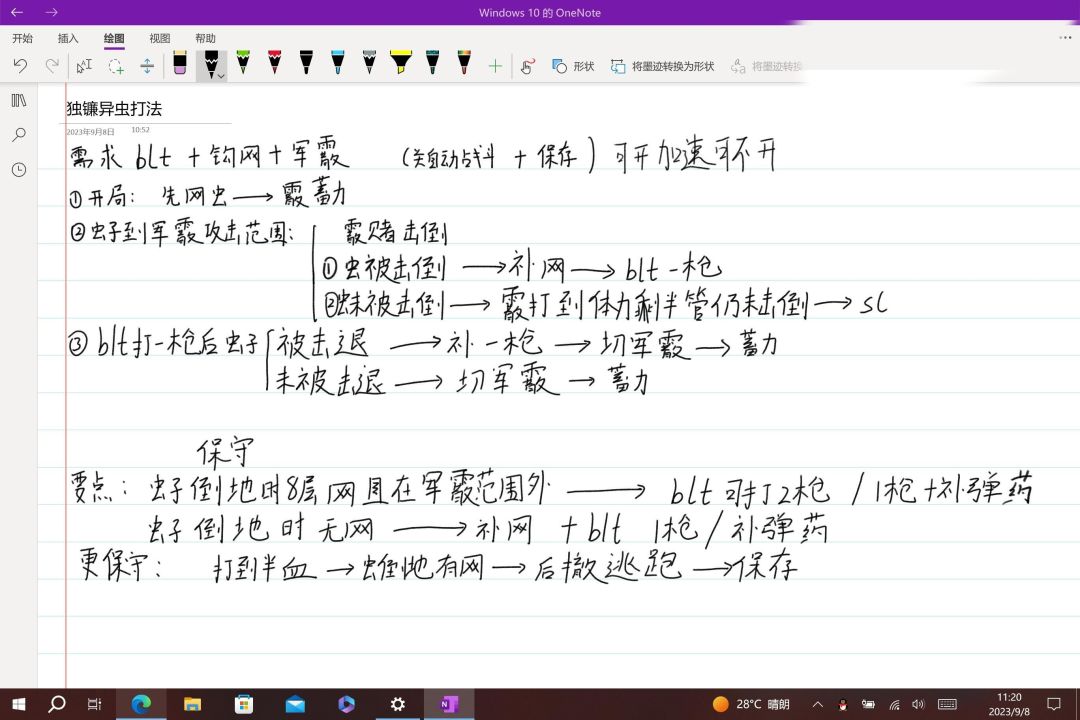 Windows 10 的 OneNote
开始 插入 绘图 视图 帮助
形状 将墨迹转换为形状 将墨迹转换
独镰异虫打法
2023年9月8日 10:52
需求 blt + 钩网 + 军霰 (关自动战斗 + 保存) 可开加速可不开
①开局: 先网虫 → 霰蓄力
②虫子到军霰攻击范围: 霰赌击倒
①虫被击倒 → 补网 → blt 一枪
②虫未被击倒 → 霰打到体力剩半管仍未击倒 → SL
③ blt打一枪后虫子 被击退 → 补一枪 → 切军霰 → 蓄力
未被击退 → 切军霰 → 蓄力
保守
要点: 虫子倒地时8层网且在军霰范围外 → blt可打2枪 / 1枪+补弹药
虫子倒地时无网 → 补网 + blt 1枪 / 补弹药
更保守: 打到半血 → 虫倒地有网 → 后撤逃跑 → 保存
28°C 晴朗
11:20
2023/9/8